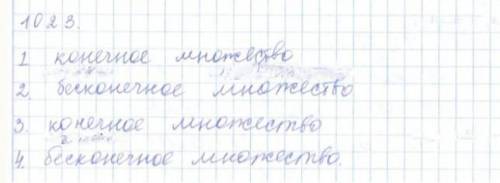 1023.
1. конечное множество
2. бесконечное множество
3. конечное множество
4. бесконечное множество.